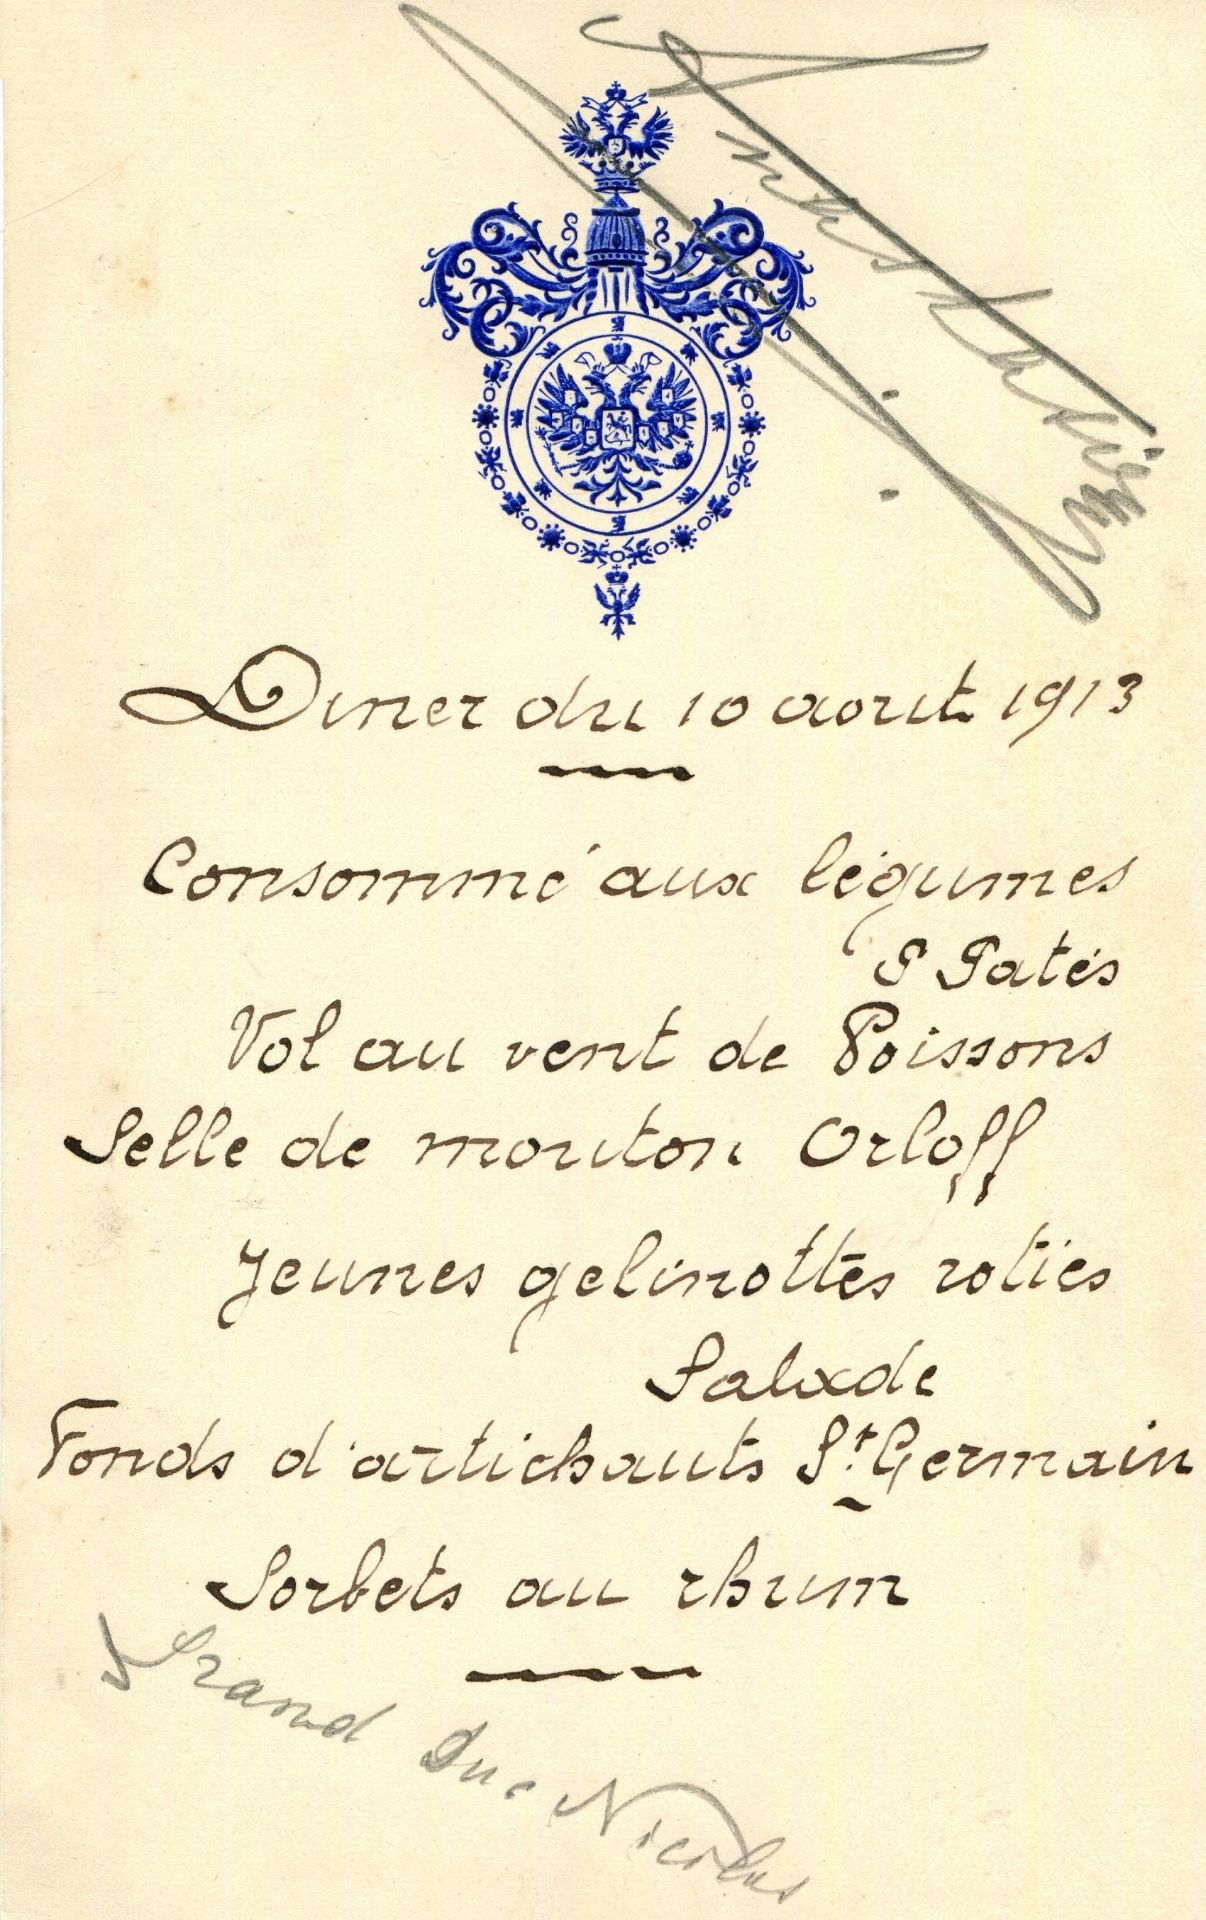 Diner du 10 aout 1913
Consommé aux légumes
P Patés
Vol au vent de Poissons
Selle de mouton Orloff
Jeunes gelinottes roties
Salade
Fonds d'artichauts St Germain
Sorbets au rhum
Grand Duc Nicolas